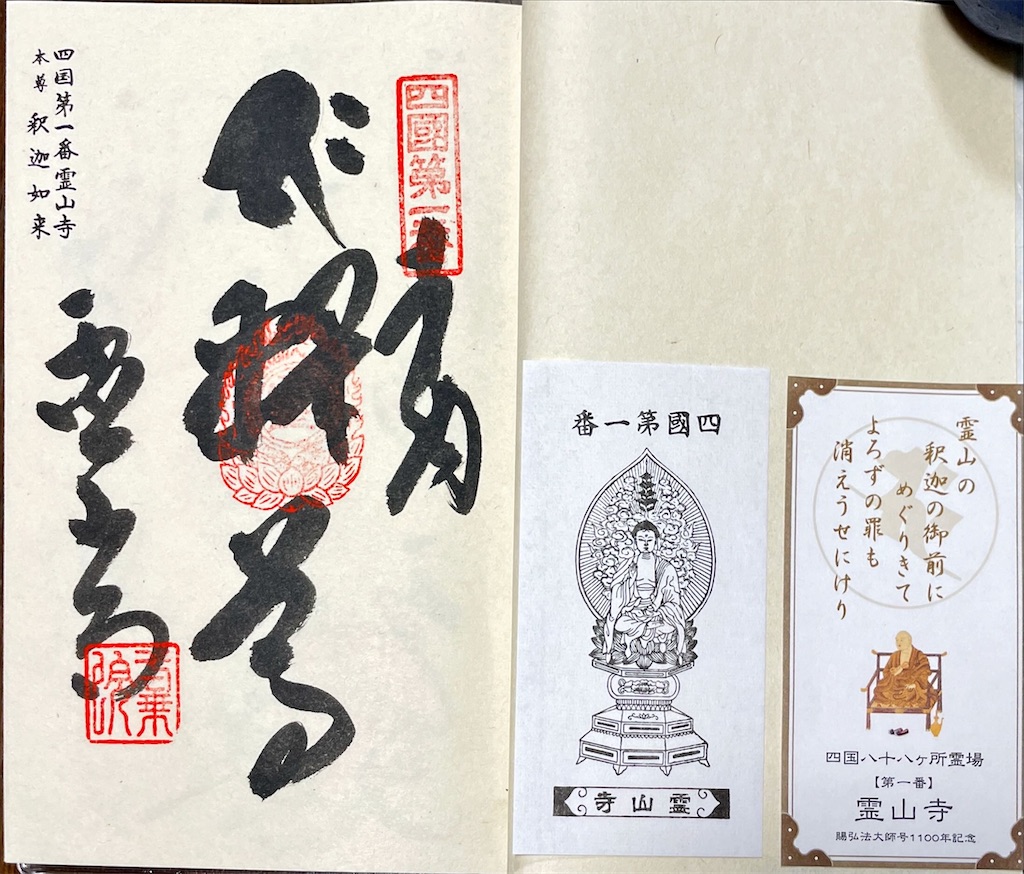 四国第一番霊山寺
本尊 釈迦如来
四國第一番
霊山寺
四國第一番
靈山寺
霊山の
釈迦の御前に
めぐりきて
よろずの罪も
消えうせにけり
四国八十八ヶ所霊場
【第一番】
霊山寺
賜弘法大師号1100年記念